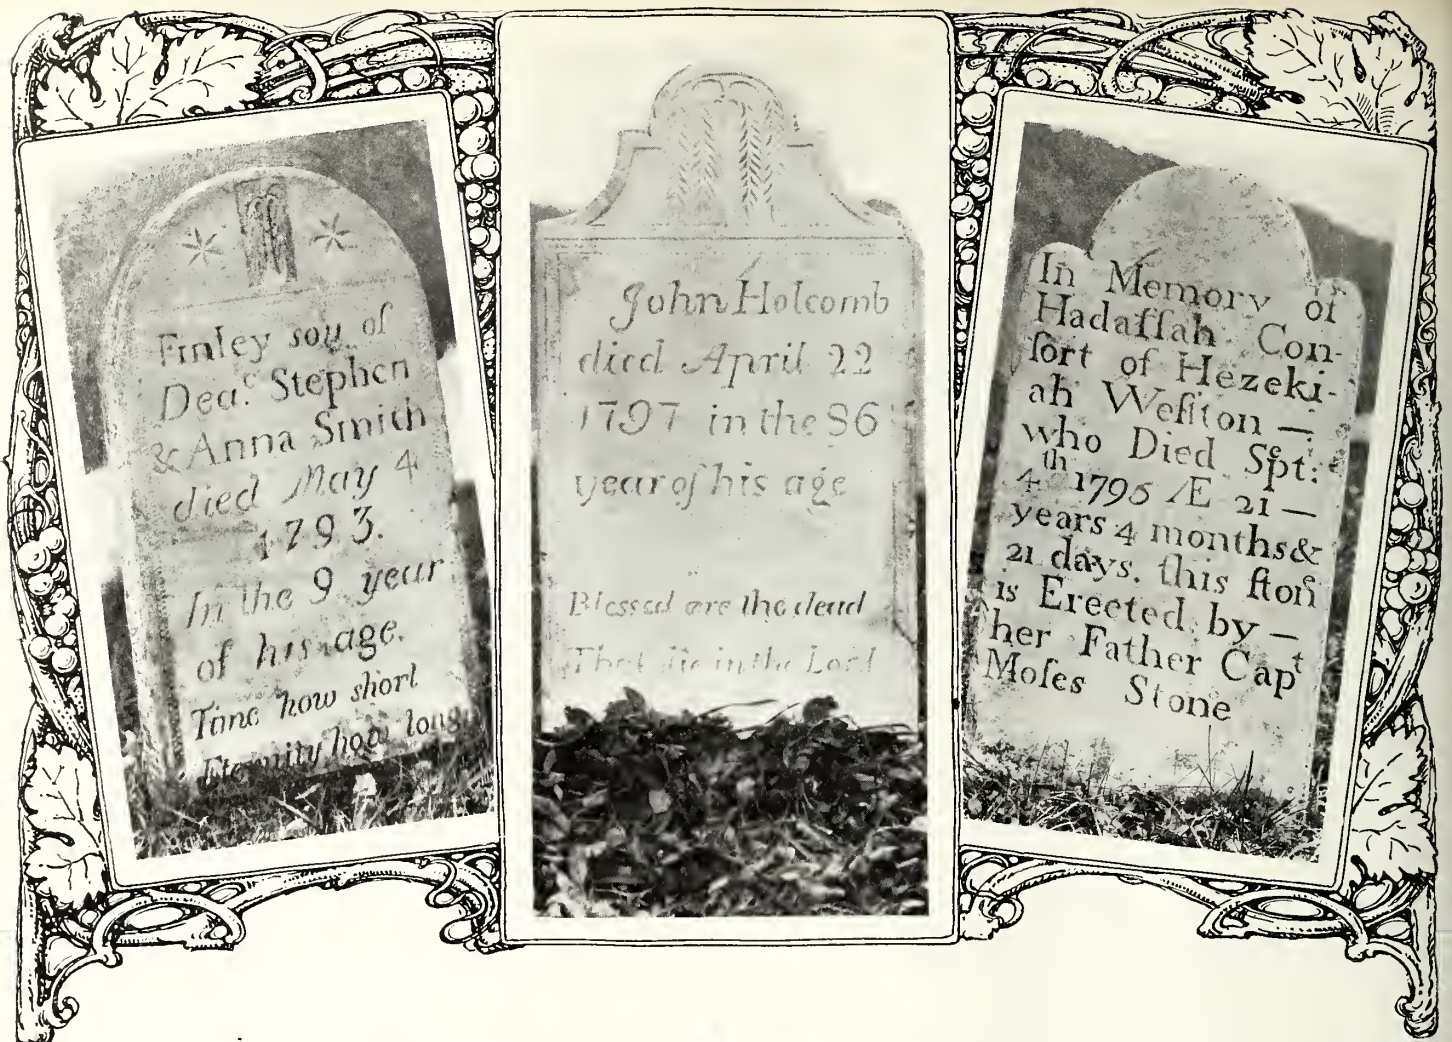 Finley son of
Deaᶜ. Stephen
& Anna Smith
died May 4
1793.
In the 9 year
of his age.
Time how short
Eternity how long
John Holcomb
died April 22
1797 in the 86
year of his age
Blessed are the dead
That die in the Lord
In Memory of
Hadaſſah Con-
ſort of Hezeki-
ah Weſiton —
who Died Spᵉt:
4ᵗʰ 1795 Æ 21 —
years 4 months &
21 days. this ſtonᵉ
is Erected by —
her Father Capᵗ
Moſes Stone